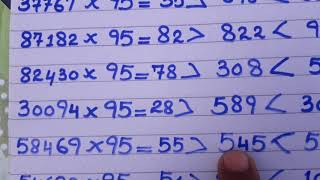 37767 × 95 = 35 >
87182 × 95 = 82 > 822 < 9
82430 × 95 = 78 > 308 < 5
30094 × 95 = 28 > 589 < 30
58469 × 95 = 55 > 545 < 5